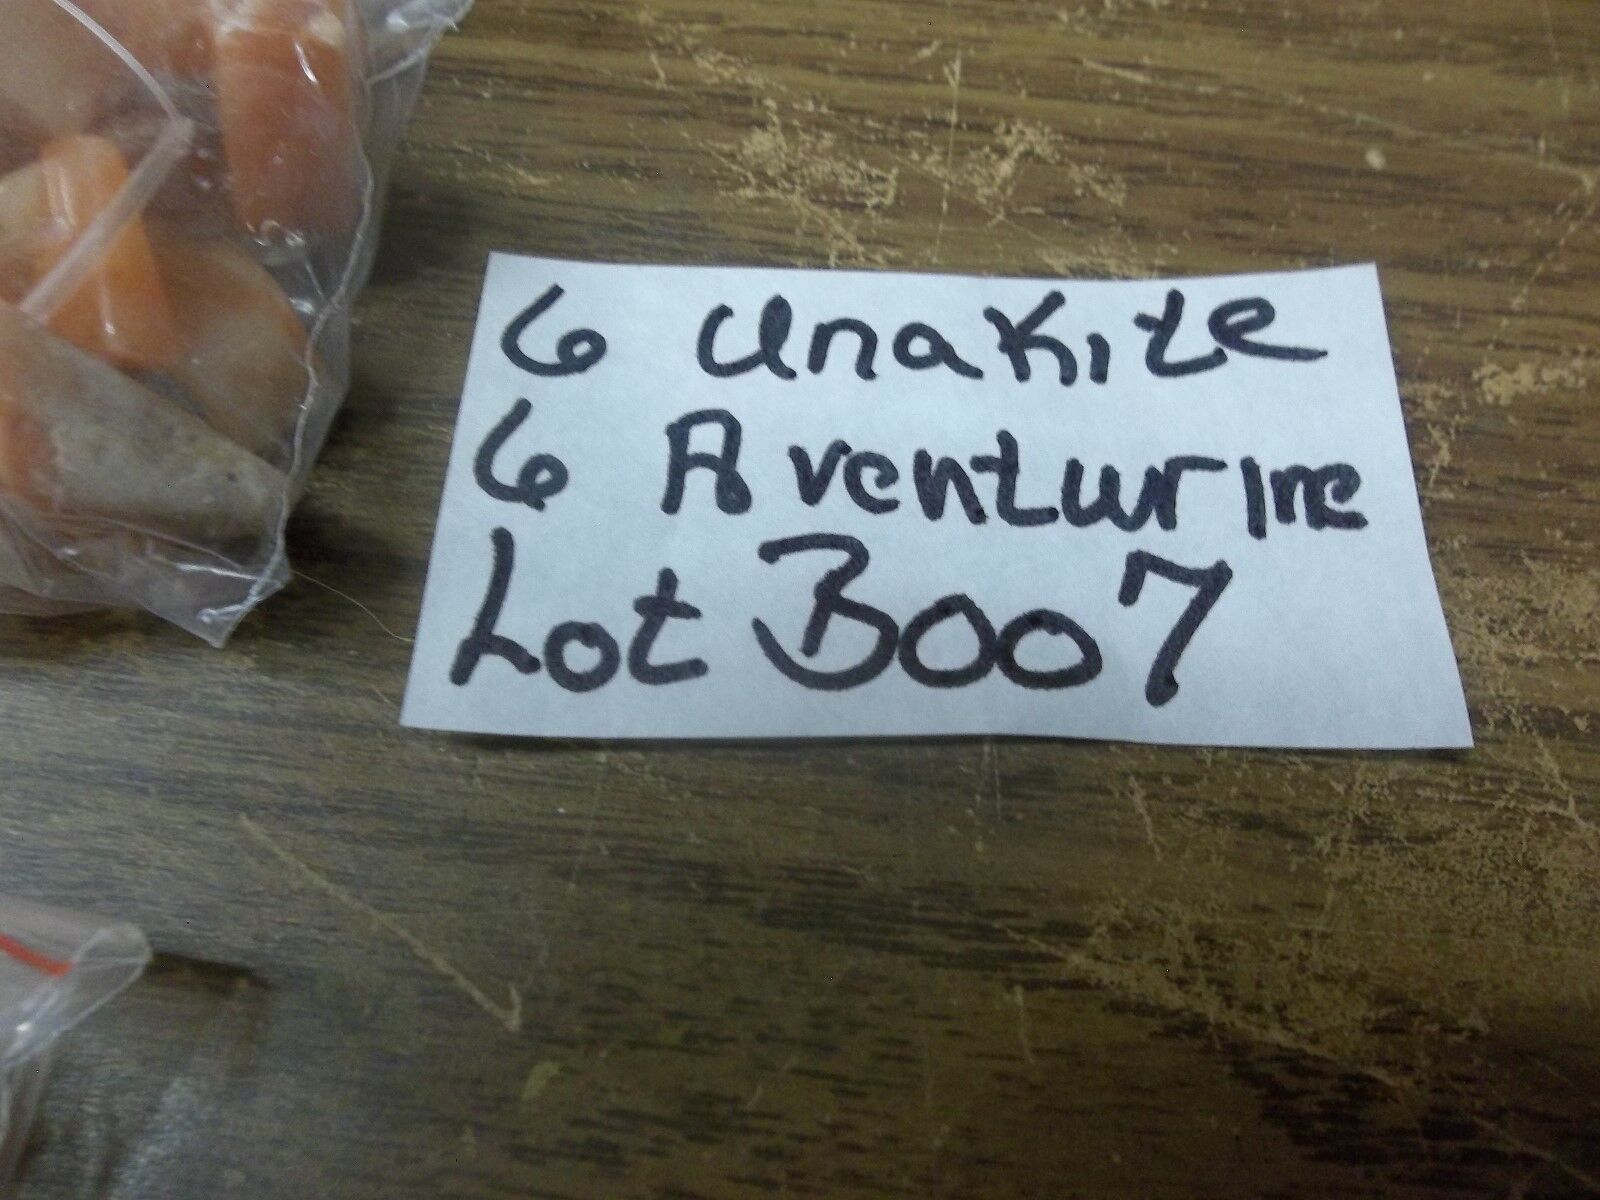 6 Unakite
6 Aventurine
Lot B007